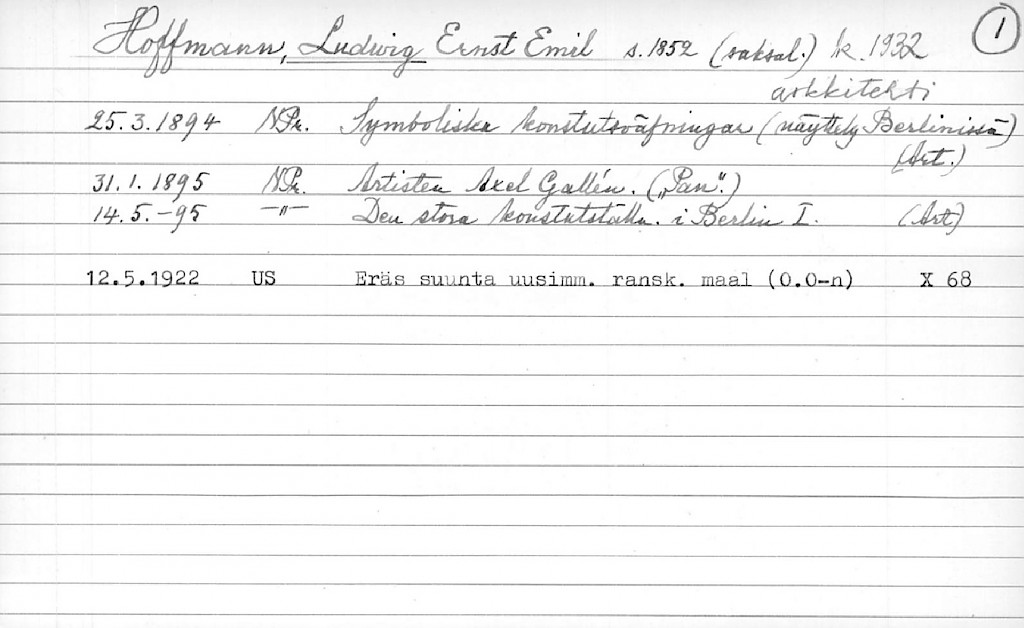 Hoffmann, Ludwig Ernst Emil s. 1852 (saksal.) k. 1932 1
arkkitehti
25.3.1894 NPr. Symboliska konstutsväfningar (näyttely Berlinissä)
(Art.)
31.1.1895 NPr. Artisten Axel Gallén. („Pan”.)
14.5.-95 —"— Den stora konstutställn. i Berlin I. (Art)
12.5.1922 US Eräs suunta uusimm. ransk. maal (O.O-n) X 68